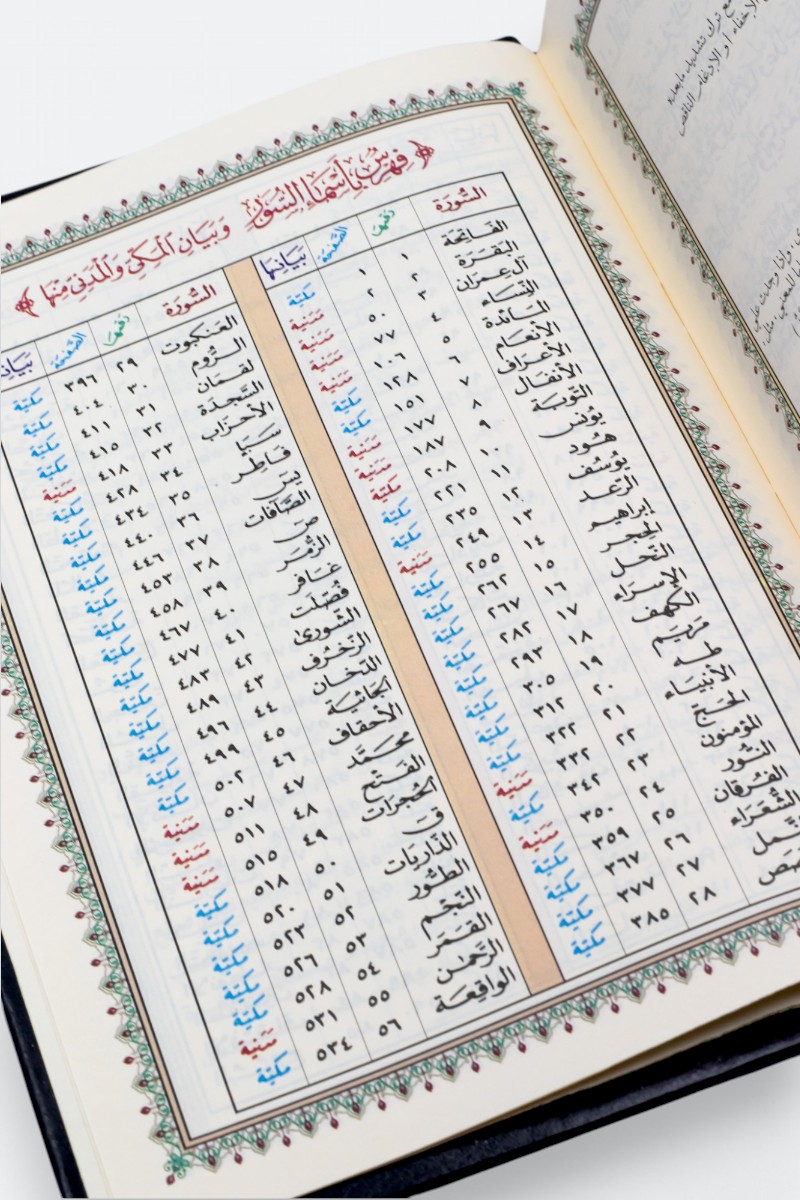 مع ترك تشديد مابعده
الإخفاء أو الإدغام الناقص
فِهْرِسٌ بِأَسْمَاءِ السُّوَرِ وَبَيَانِ الْمَكِّيِّ وَالْمَدَنِيِّ مِنْهَا
السُّورَة رَقمهَا الصَّحيفَة بَيَانهَا
الفَاتِحَة ١ ١ مَكيّة
البَقَرَة ٢ ٢ مَدَنية
آل عِمرَان ٣ ٥٠ مَدَنية
النِّسَاء ٤ ٧٧ مَدَنية
المَائدة ٥ ١٠٦ مَدَنية
الأنعَام ٦ ١٢٨ مَكيّة
الأعرَاف ٧ ١٥١ مَكيّة
الأنفَال ٨ ١٧٧ مَدَنية
التوبَة ٩ ١٨٧ مَدَنية
يُونس ١٠ ٢٠٨ مَكيّة
هُود ١١ ٢٢١ مَكيّة
يُوسُف ١٢ ٢٣٥ مَكيّة
الرّعد ١٣ ٢٤٩ مَدَنية
إبراهيم ١٤ ٢٥٥ مَكيّة
الحِجر ١٥ ٢٦٢ مَكيّة
النّحل ١٦ ٢٦٧ مَكيّة
الإسرَاء ١٧ ٢٨٢ مَكيّة
الكهف ١٨ ٢٩٣ مَكيّة
مَريَم ١٩ ٣٠٥ مَكيّة
طه ٢٠ ٣١٢ مَكيّة
الأنبيَاء ٢١ ٣٢٢ مَكيّة
الحَج ٢٢ ٣٣٢ مَدَنية
المؤمنون ٢٣ ٣٤٢ مَكيّة
النّور ٢٤ ٣٥٠ مَدَنية
الفُرقان ٢٥ ٣٥٩ مَكيّة
الشُّعَرَاء ٢٦ ٣٦٧ مَكيّة
٢٧ ٣٧٧ مَكيّة
٢٨ ٣٨٥ مَكيّة
السُّورَة رَقمهَا الصَّحيفَة
العَنكبوت ٢٩ ٣٩٦ مَكيّة
الرُّوم ٣٠ ٤٠٤ مَكيّة
لقمَان ٣١ ٤١١ مَكيّة
السَّجدَة ٣٢ ٤١٥ مَكيّة
الأحزَاب ٣٣ ٤١٨ مَدَنية
سَبَأ ٣٤ ٤٢٨ مَكيّة
فَاطِر ٣٥ ٤٣٤ مَكيّة
يسٓ ٣٦ ٤٤٠ مَكيّة
الصَّافات ٣٧ ٤٤٦ مَكيّة
صٓ ٣٨ ٤٥٣ مَكيّة
الزُّمَر ٣٩ ٤٥٨ مَكيّة
غَافر ٤٠ ٤٦٧ مَكيّة
فُصّلَت ٤١ ٤٧٧ مَكيّة
الشّورىٰ ٤٢ ٤٨٣ مَكيّة
الزّخرُف ٤٣ ٤٨٩ مَكيّة
الدّخَان ٤٤ ٤٩٦ مَكيّة
الجَاثية ٤٥ ٤٩٩ مَكيّة
الأحقاف ٤٦ ٥٠٢ مَكيّة
محَمَّد ٤٧ ٥٠٧ مَدَنية
الفَتح ٤٨ ٥١١ مَدَنية
الحُجرَات ٤٩ ٥١٥ مَدَنية
قٓ ٥٠ ٥١٨ مَكيّة
الذّاريَات ٥١ ٥٢٠ مَكيّة
الطّور ٥٢ ٥٢٣ مَكيّة
النّجْم ٥٣ ٥٢٦ مَكيّة
القَمَر ٥٤ ٥٢٨ مَكيّة
الرَّحمٰن ٥٥ ٥٣١ مَدَنية
الواقِعَة ٥٦ ٥٣٤ مَكيّة